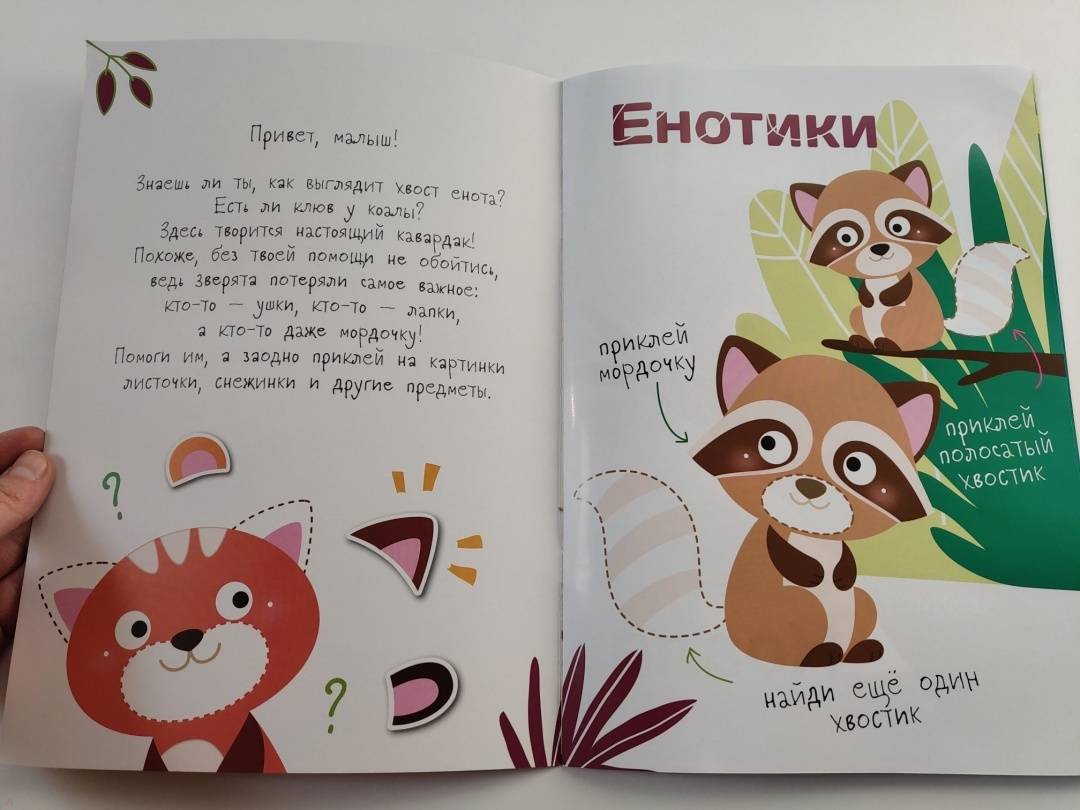 Привет, малыш!
Знаешь ли ты, как выглядит хвост енота?
Есть ли клюв у коалы?
Здесь творится настоящий кавардак!
Похоже, без твоей помощи не обойтись,
ведь зверята потеряли самое важное:
кто-то — ушки, кто-то — лапки,
а кто-то даже мордочку!
Помоги им, а заодно приклей на картинки
листочки, снежинки и другие предметы.
?
?
Енотики
приклей
мордочку
приклей
полосатый
хвостик
найди ещё один
хвостик